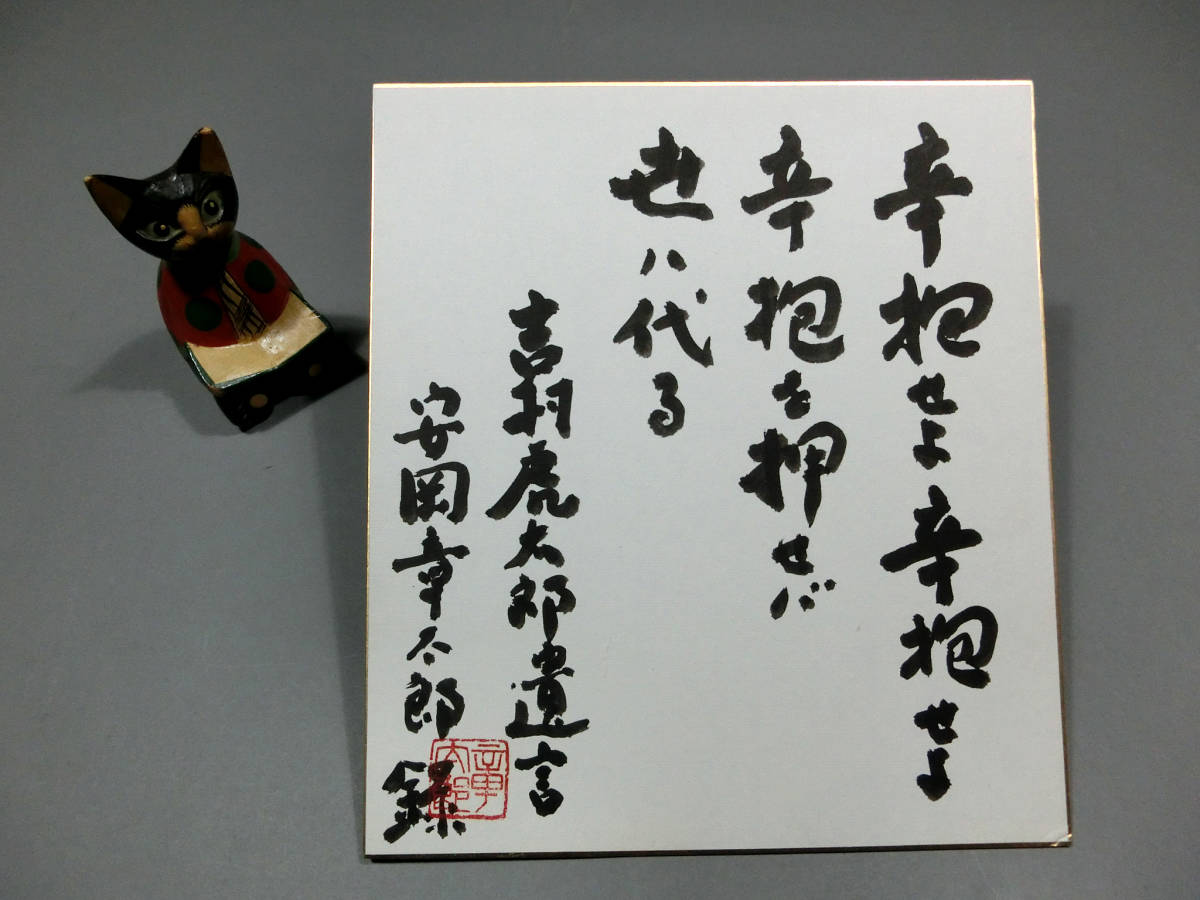 辛抱せよ辛抱せよ
辛抱を押せバ
世ハ代る
吉村虎太郎遺言
安岡章太郎録
章太郎